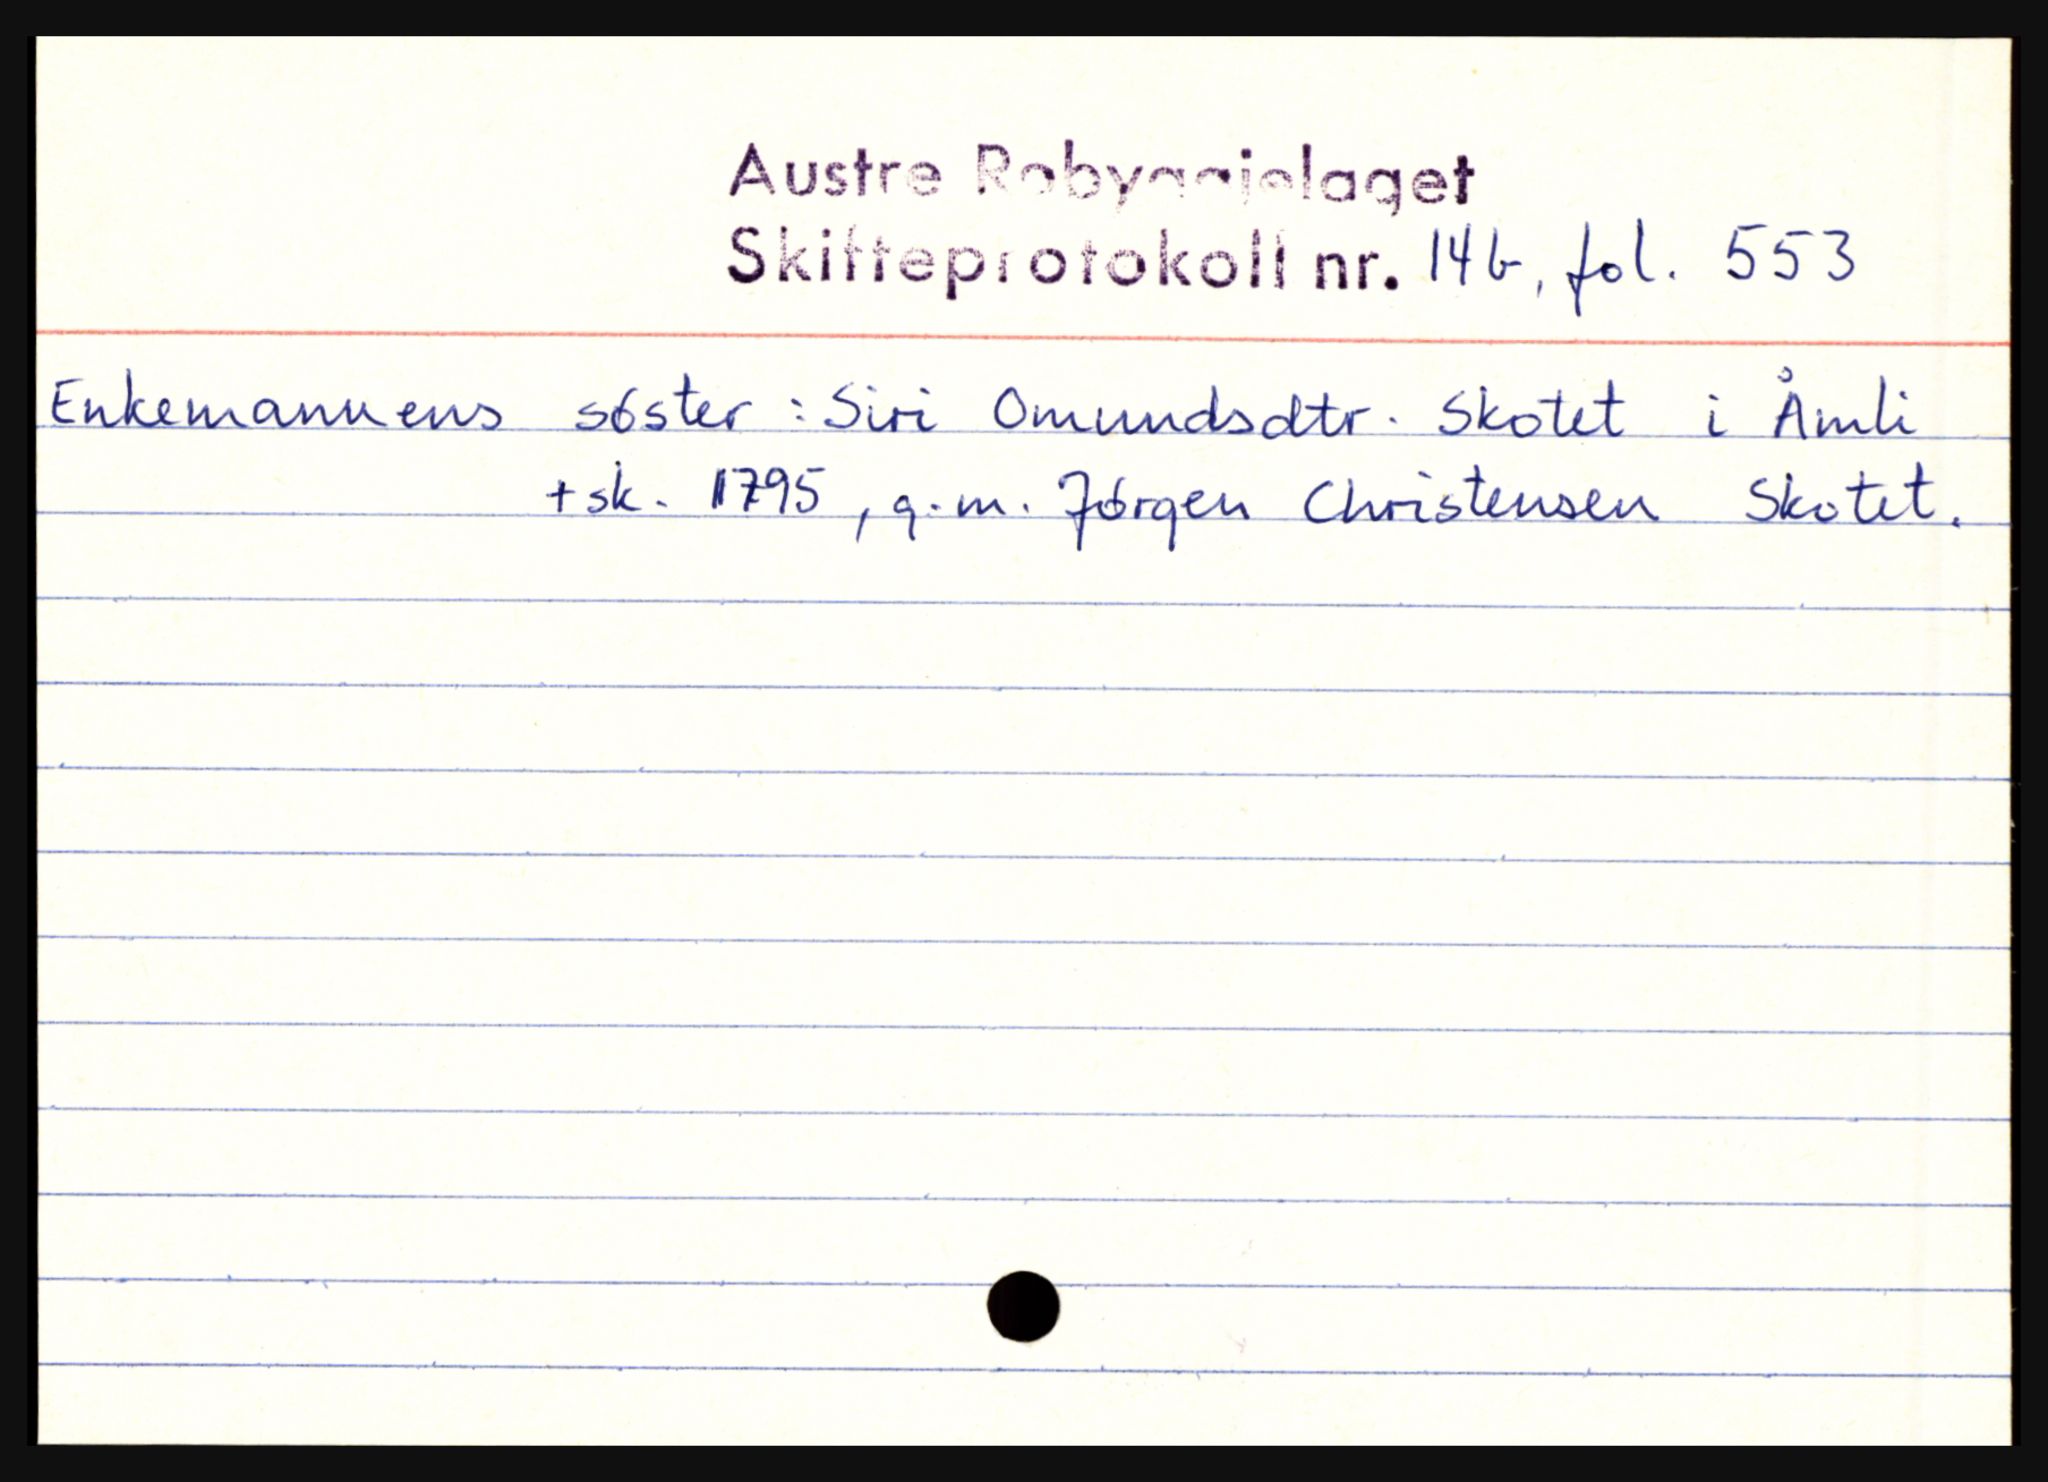 Austre Robyggjelaget
Skifteprotokoll nr. 14b, fol. 553
Enkemannens söster : Siri Omundsdtr. Skotet i Åmli
+ sk. 1795, g.m. Jörgen Christensen Skotet.